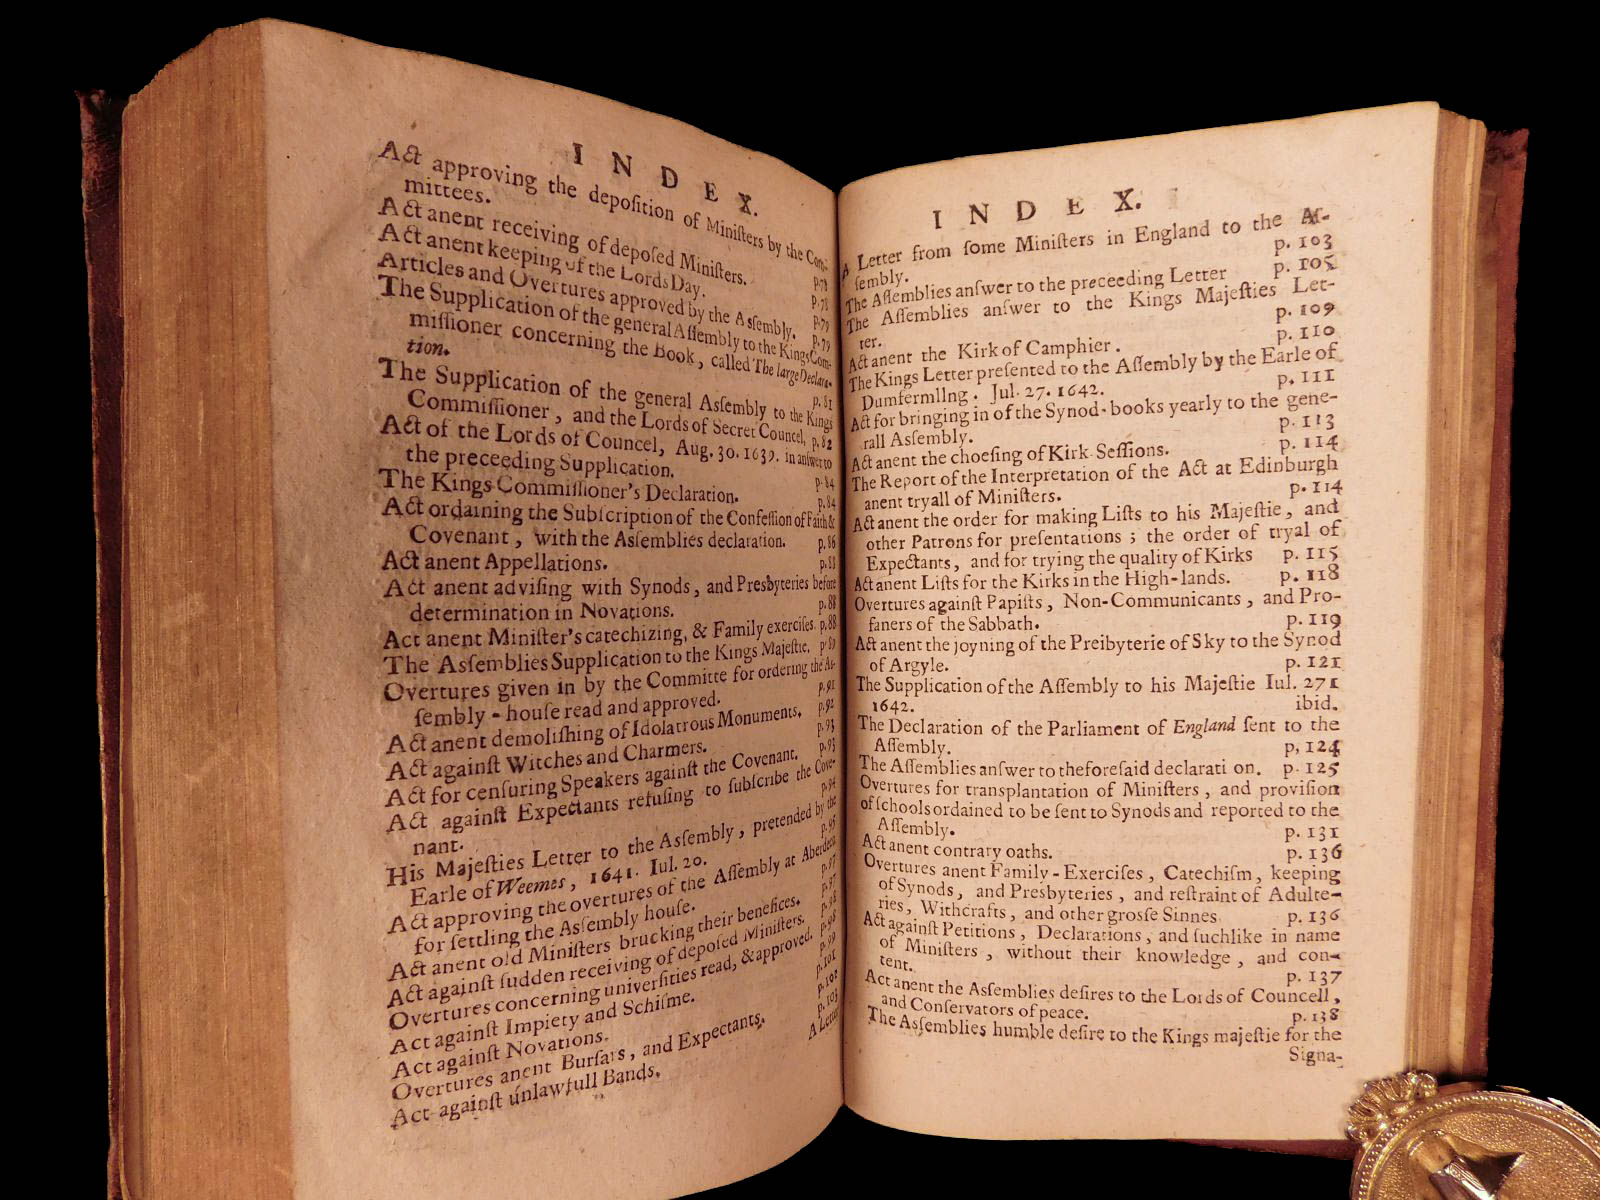 I N D E X.
Act approving the depoſition of Miniſters by the Com-
mittees. p.78
Act anent receiving of depoſed Miniſters. p.78
Act anent keeping of the Lords Day. p.79
Articles and Overtures approved by the Aſſembly. p.79
The Supplication of the general Aſſembly to the Kings Com-
miſſioner concerning the Book, called The large Declara-
tion. p.81
The Supplication of the general Aſſembly to the Kings
Commiſſioner, and the Lords of Secret Councel, p.82
Act of the Lords of Councel, Aug. 30. 1639. in anſwer to
the preceeding Supplication. p.84
The Kings Commiſſioner's Declaration. p.84
Act ordaining the Subſcription of the Confeſſion of Faith &
Covenant, with the Aſſemblies declaration. p.86
Act anent Appellations. p.88
Act anent adviſing with Synods, and Presbyteries before
determination in Novations. p.88
Act anent Miniſter's catechizing, & Family exerciſes. p.88
The Aſſemblies Supplication to the Kings Majeſtie. p.89
Overtures given in by the Committe for ordering the Aſ-
ſembly-houſe read and approved. p.91
Act anent demoliſhing of Idolatrous Monuments. p.92
Act againſt Witches and Charmers. p.93
Act for cenſuring Speakers againſt the Covenant. p.93
Act againſt Expectants refuſing to ſubſcribe the Cove-
nant. p.94
His Majeſties Letter to the Aſſembly, pretended by the
Earle of Weemes, 1641. Iul. 20. p.95
Act approving the overtures of the Aſſembly at Aberdeen
for ſettling the Aſſembly houſe. p.97
Act anent old Miniſters brucking their benefices. p.97
Act againſt ſudden receiving of depoſed Miniſters. p.98
Overtures concerning univerſities read, & approved. p.98
Act againſt Impiety and Schiſme. p.99
Act againſt Novations. p.101
Overtures anent Burſars, and Expectants. p.102
Act againſt unlawfull Bands. p.103
A Letter
I N D E X.
A Letter from ſome Miniſters in England to the Aſ-
ſembly. p. 103
The Aſſemblies anſwer to the preceeding Letter p. 105
The Aſſemblies anſwer to the Kings Majeſties Let-
ter. p. 109
Act anent the Kirk of Camphier. p. 110
The Kings Letter preſented to the Aſſembly by the Earle of
Dumfermling. Jul. 27. 1642. p. 111
Act for bringing in of the Synod-books yearly to the gene-
rall Aſſembly. p. 113
Act anent the choeſing of Kirk-Seſſions. p. 114
The Report of the Interpretation of the Act at Edinburgh
anent tryall of Miniſters. p. 114
Act anent the order for making Liſts to his Majeſtie, and
other Patrons for preſentations; the order of tryal of
Expectants, and for trying the quality of Kirks p. 115
Act anent Liſts for the Kirks in the High-lands. p. 118
Overtures againſt Papiſts, Non-Communicants, and Pro-
faners of the Sabbath. p. 119
Act anent the joyning of the Preibyterie of Sky to the Synod
of Argyle. p. 121
The Supplication of the Aſſembly to his Majeſtie Iul. 271
1642. ibid.
The Declaration of the Parliament of England ſent to the
Aſſembly. p, 124
The Aſſemblies anſwer to theforeſaid declarati on. p. 125
Overtures for transplantation of Miniſters, and proviſion
of ſchools ordained to be ſent to Synods and reported to the
Aſſembly. p. 131
Act anent contrary oaths. p. 136
Overtures anent Family-Exerciſes, Catechiſm, keeping
of Synods, and Presbyteries, and reſtraint of Adulte-
ries, Withcrafts, and other groſſe Sinnes p. 136
Act againſt Petitions, Declarations, and ſuchlike in name
of Miniſters, without their knowledge, and con-
tent. p. 137
Act anent the Aſſemblies deſires to the Lords of Councell,
and Conſervators of peace. p. 138
The Aſſemblies humble deſire to the Kings majeſtie for the
Signa-